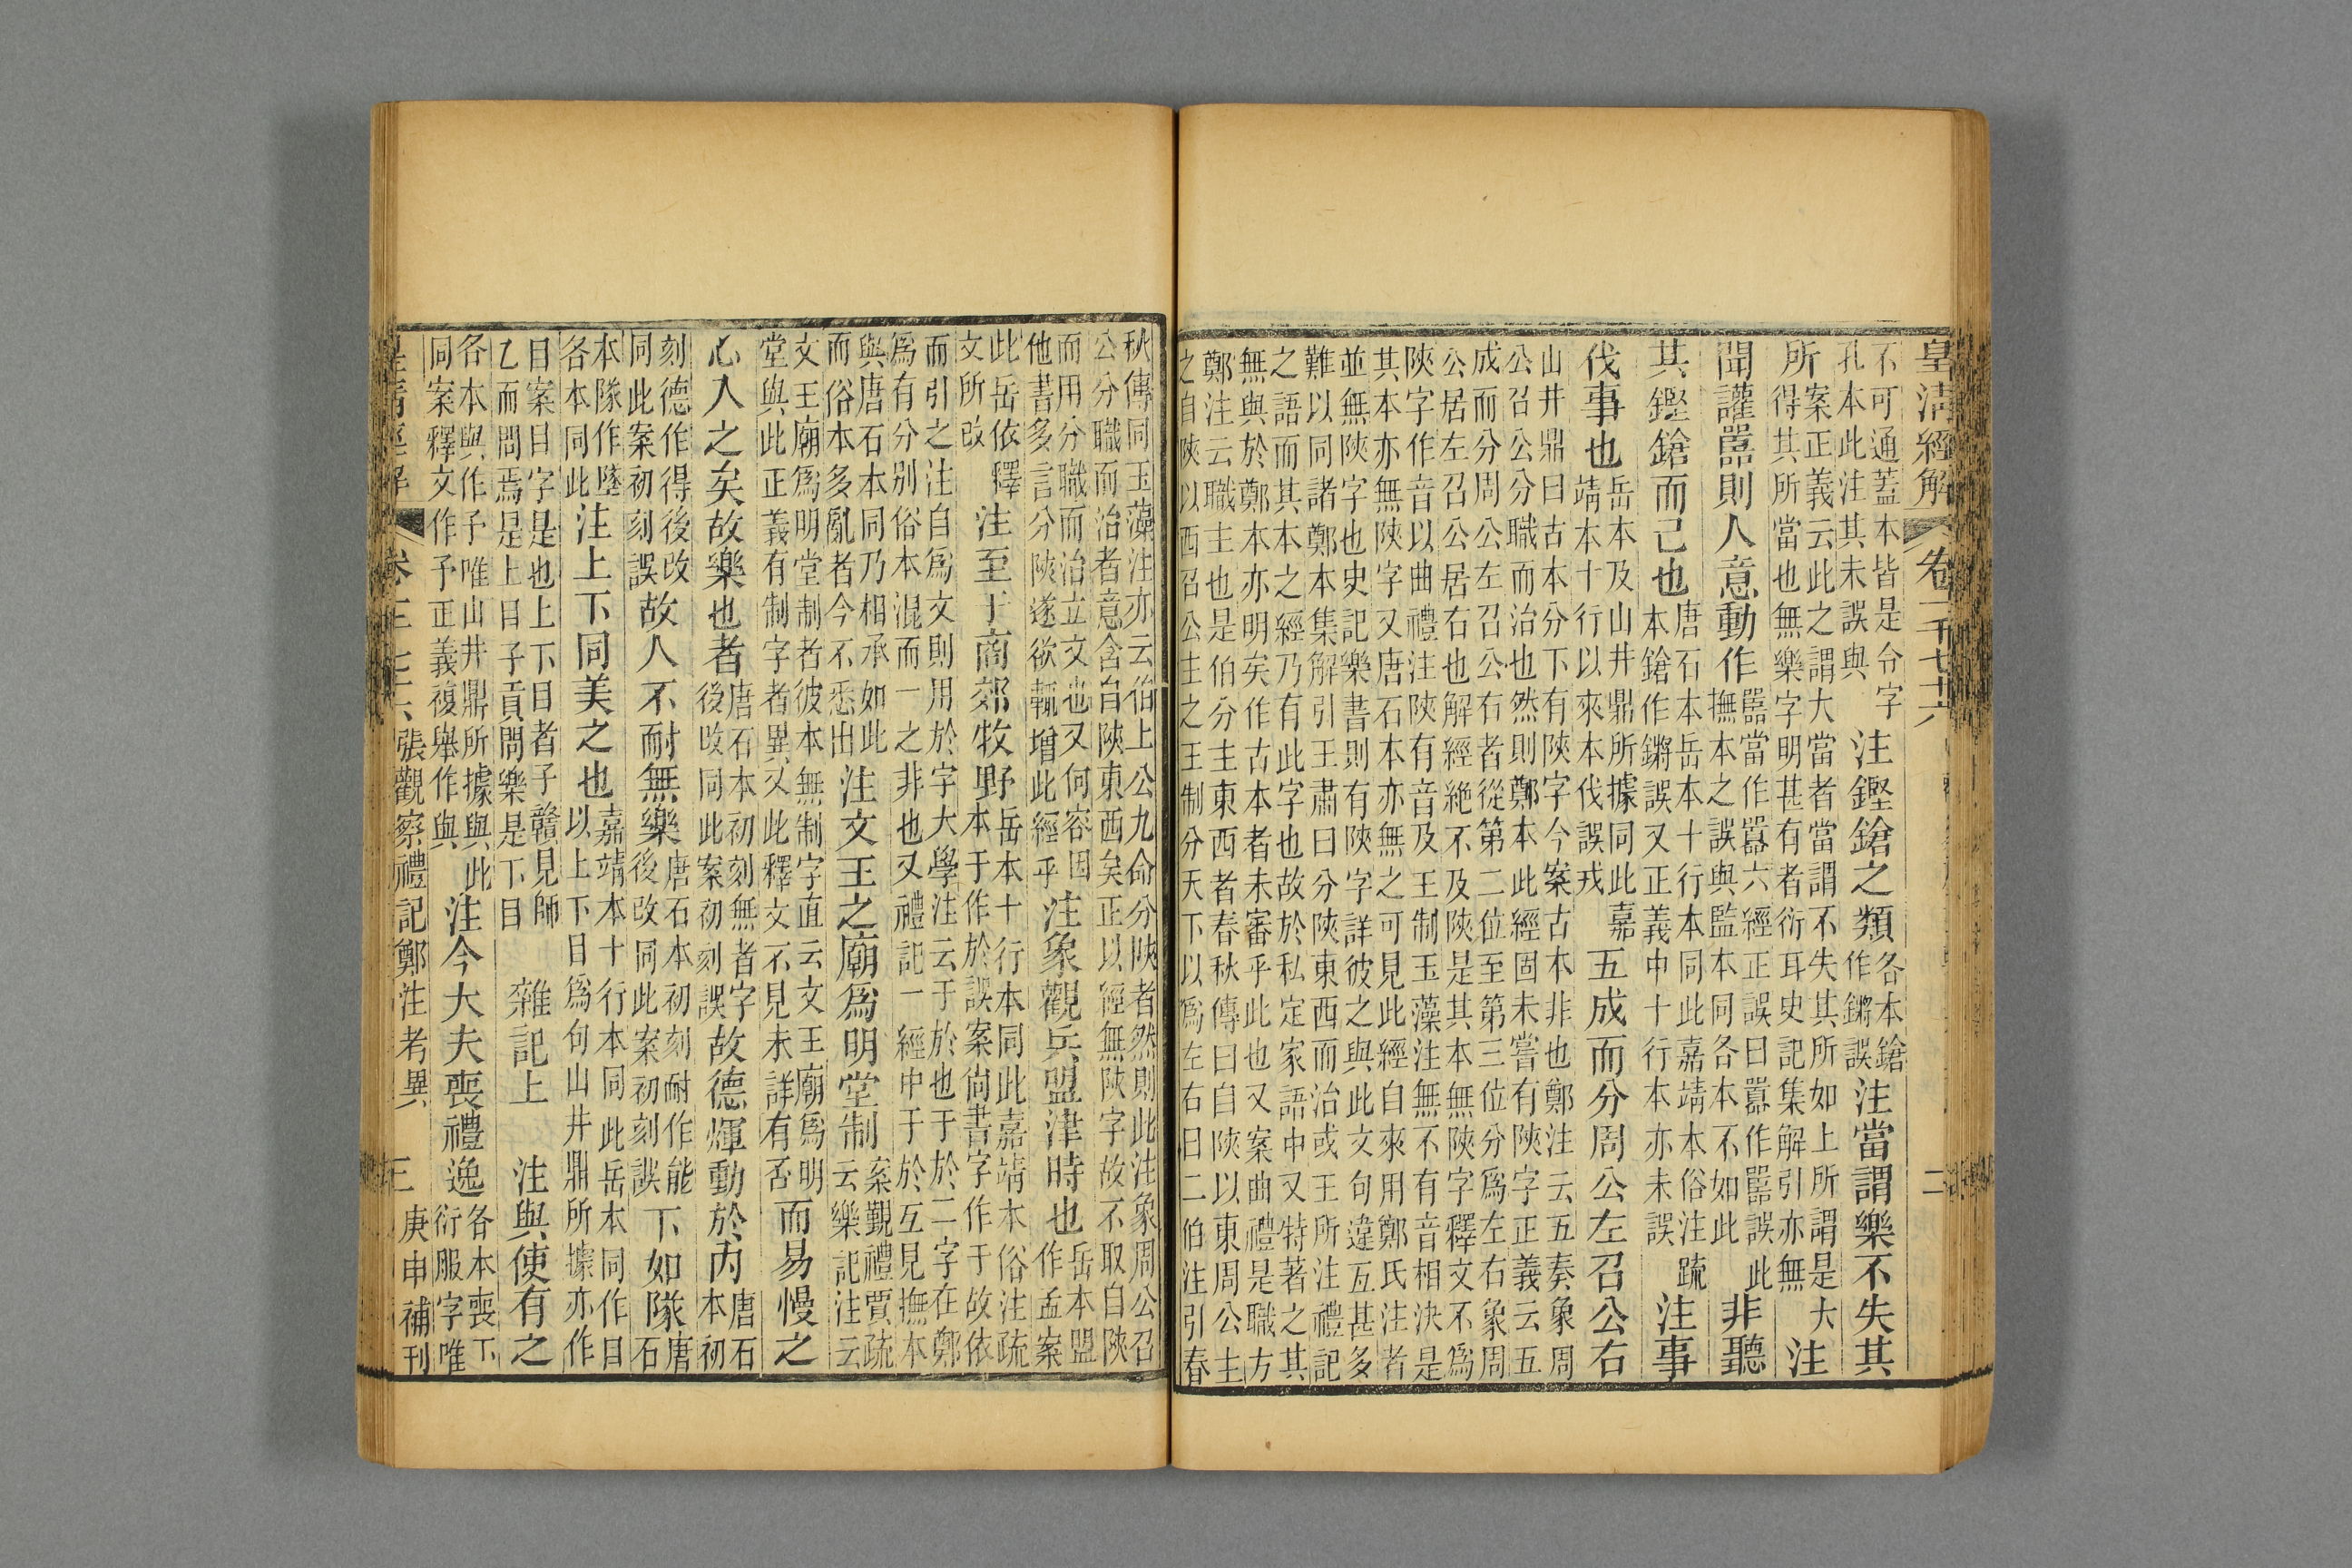 皇清經解 卷一千七十六 二
不可通蓋本皆是今字
孔本此注其未誤與
注鏗鎗之類
各本鎗
作鏘誤
注當謂樂不失其
所
案正義云此之謂大當者當謂不失其所如上所謂是大
得其所當也無樂字明甚有者衍耳史記集解引亦無
注
聞讙嚚則人意動作
嚚當作囂六經正誤曰囂作嚚誤此
撫本之誤與監本同各本不如此
非聽
其鏗鎗而已也
唐石本岳本十行本同此嘉靖本俗注疏
本鎗作鏘誤又正義中十行本亦未誤
注事
伐事也
岳本及山井鼎所據同此嘉
靖本十行以來本伐誤戎
五成而分周公左召公右
山井鼎曰古本分下有陝字今案古本非也鄭注云五奏象周
公召公分職而治也然則鄭本此經固未嘗有陝字正義云五
成而分周公左召公右者從第二位至第三位分爲左右象周
公居左召公居右也解經絶不及陝是其本無陝字釋文不爲
陝字作音以曲禮注陝有音及王制玉藻注無不有音相決是
其本亦無陝字又唐石本亦無之可見此經自來用鄭氏注者
並無陝字也史記樂書則有陝字詳彼之與此文句違互甚多
難以同諸鄭本集解引王肅曰分陝東西而治或王所注禮記
之語而其本之經乃有此字也故於私定家語中又特著之其
無與於鄭本亦明矣作古本者未審乎此也又案曲禮是職方
鄭注云職主也是伯分主東西者春秋傳曰自陝以東周公主
之自陝以西召公主之王制分天下以爲左右曰二伯注引春
秋傳同玉藻注亦云伯上公九命分陝者然則此注象周公召
公分職而治者意含自陝東西矣正以經無陝字故不取自陝
而用分職而治立文也又何容因
他書多言分陝遂欲輒增此經乎
注象觀兵盟津時也
岳本盟
作孟案
此岳依釋
文所改
注至于商郊牧野
岳本十行本同此嘉靖本俗注疏
本于作於誤案尙書字作于故依
而引之注自爲文則用於字大學注云于於也于於二字在鄭
爲有分別俗本混而一之非也又禮記一經中于於互見撫本
與唐石本同乃相承如此
而俗本多亂者今不悉出
注文王之廟爲明堂制
案覲禮賈疏
云樂記注云
文王廟爲明堂制者彼本無制字直云文王廟爲明
堂與此正義有制字者異又此釋文不見未詳有否
而易慢之
心入之矣故樂也者
唐石本初刻無者字
後改同此案初刻誤
故德煇動於内
唐石
本初
刻德作得後改
同此案初刻誤
故人不耐無樂
唐石本初刻耐作能
後改同此案初刻誤
下如隊
唐
石
本隊作墜
各本同此
注上下同美之也
嘉靖本十行本同此岳本同作目
以上下目爲句山井鼎所據亦作
目案目字是也上下目者子贛見師
乙而問焉是上目子貢問樂是下目
雜記上
注與使有之
各本與作予唯山井鼎所據與此
同案釋文作予正義複舉作與
注今大夫喪禮逸
各本喪下
衍服字唯
皇清經解 卷一千七十六 張觀察禮記鄭注考異 三 庚申補刊